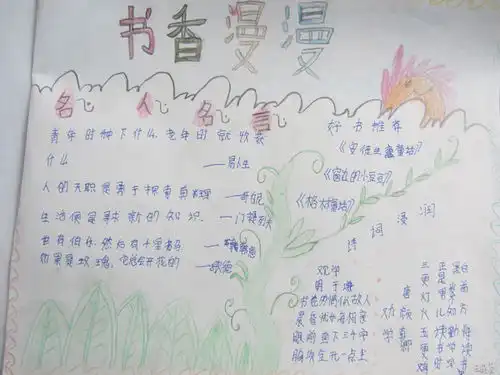 书香漫漫
名人名言
青年时种下什么，老年时就收获
什么 ——易卜生
人的天职是勇于探索真理 ——哥白尼
生活便是寻求新的知识 ——门捷列夫
世有伯乐，然后有千里马
如果是玫瑰，它总会开花的 ——歌德
好书推荐
《安徒生童话》
《窗边的小豆豆》
《格林童话》
诗词漫润
观书
明 于谦
书卷多情似故人，
晨昏忧乐每相亲
眼前直下三千字
胸次全无一点尘
劝学
唐 颜真卿
三更灯火五更鸡
正是男儿
黑发不知勤学早
白首方